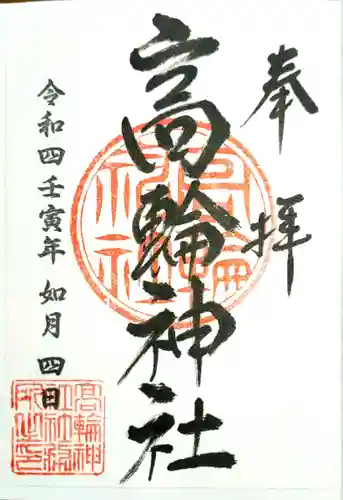 奉拝
高輪神社
令和四壬寅年 如月 四日
高輪神
社